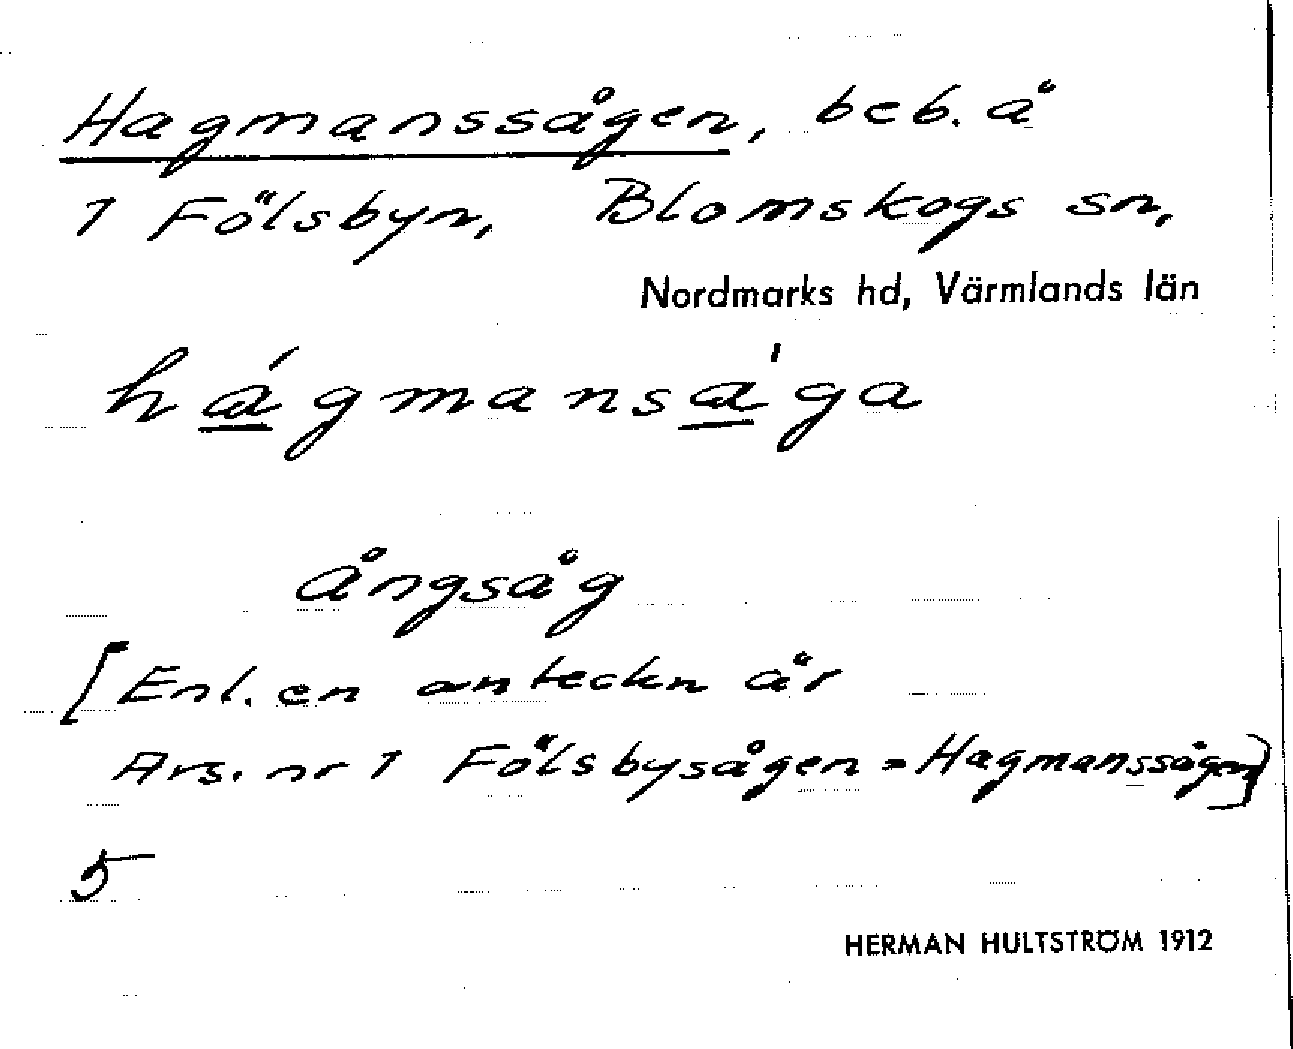 Hagmanssågen, beb. å
1 Fölsbyn, Blomskogs sn,
Nordmarks hd, Värmlands län
hágmansa̱'ga
ångsåg
[Enl. en anteckn är
Ars. nr 1 Fölsbysågen = Hagmanssågen]
5
HERMAN HULTSTRÖM 1912